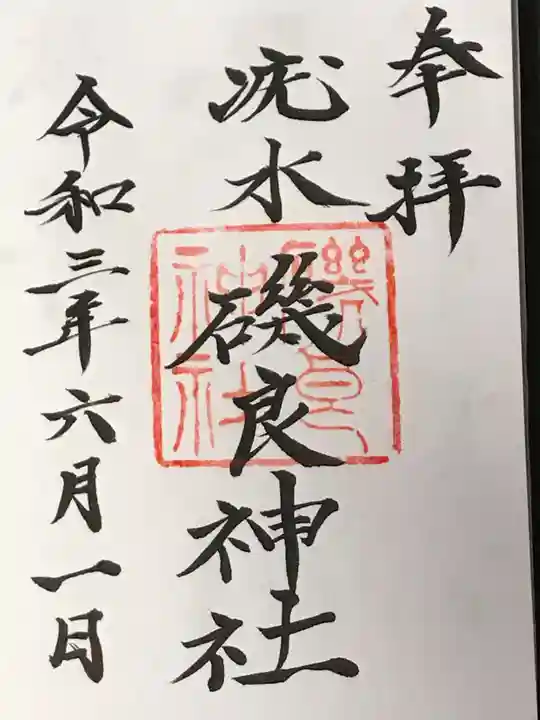 奉拝
疣水
磯良神社
令和三年六月一日
磯良神社